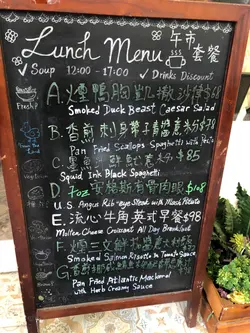 Lunch Menu 午市套餐
✓ Soup 12:00 - 17:00 ✓ Drinks Discount
A. 煙鴨胸凱撒沙律 $68
Smoked Duck Beast Caesar Salad
B. 香煎刺身帶子青醬意粉 $78
Pan Fried Scallops Spaghetti with Pesto
C. 墨魚汁 意粉 $85
Squid Ink Black Spaghetti
D. 7oz 安格斯有骨肉眼 $108
U.S Angus Rib-eye Steak with Mash Potato
E. 流心牛角英式早餐 $98
Molten Cheese Croissant All Day Breakfast
F. 煙三文鮮茄醬意
Smoked Salmon Risotto in Tomato Sauce
G.
Pan Fried Atlantic Mackerel
with Herb Creamy Sauce
Fresh!